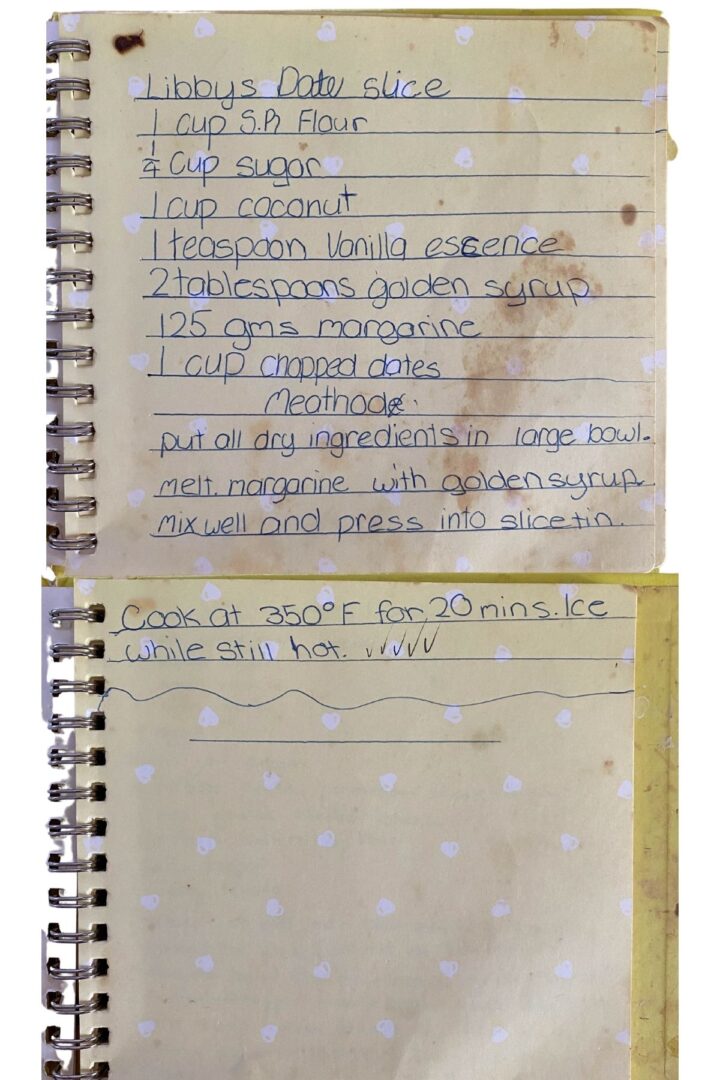 Libbys Date slice
1 cup S.R Flour
1/4 Cup sugar
1 cup coconut
1 teaspoon Vanilla essence
2 tablespoons golden syrup
125 gms margarine
1 cup chopped dates
Meathode.
put all dry ingredients in large bowl.
melt. margarine with golden syrup.
mix well and press into slice tin.
Cook at 350°F for 20 mins. Ice
while still hot. ✓✓✓✓✓